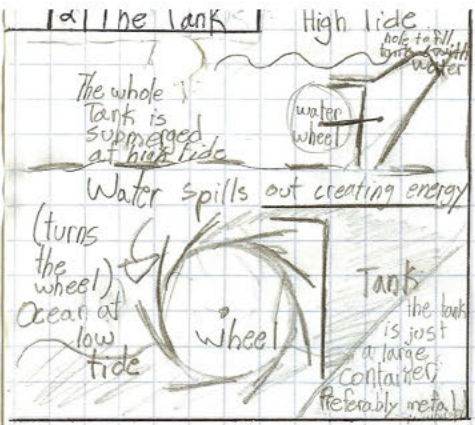 The Tank
High Tide
hole to fill
tank with
water
The whole
Tank is
submerged
at high tide
water
wheel
Water spills out creating energy
(turns
the
wheel)
Ocean at
low
tide
wheel
Tank
the tank
is just
a large
container,
Preferably metal